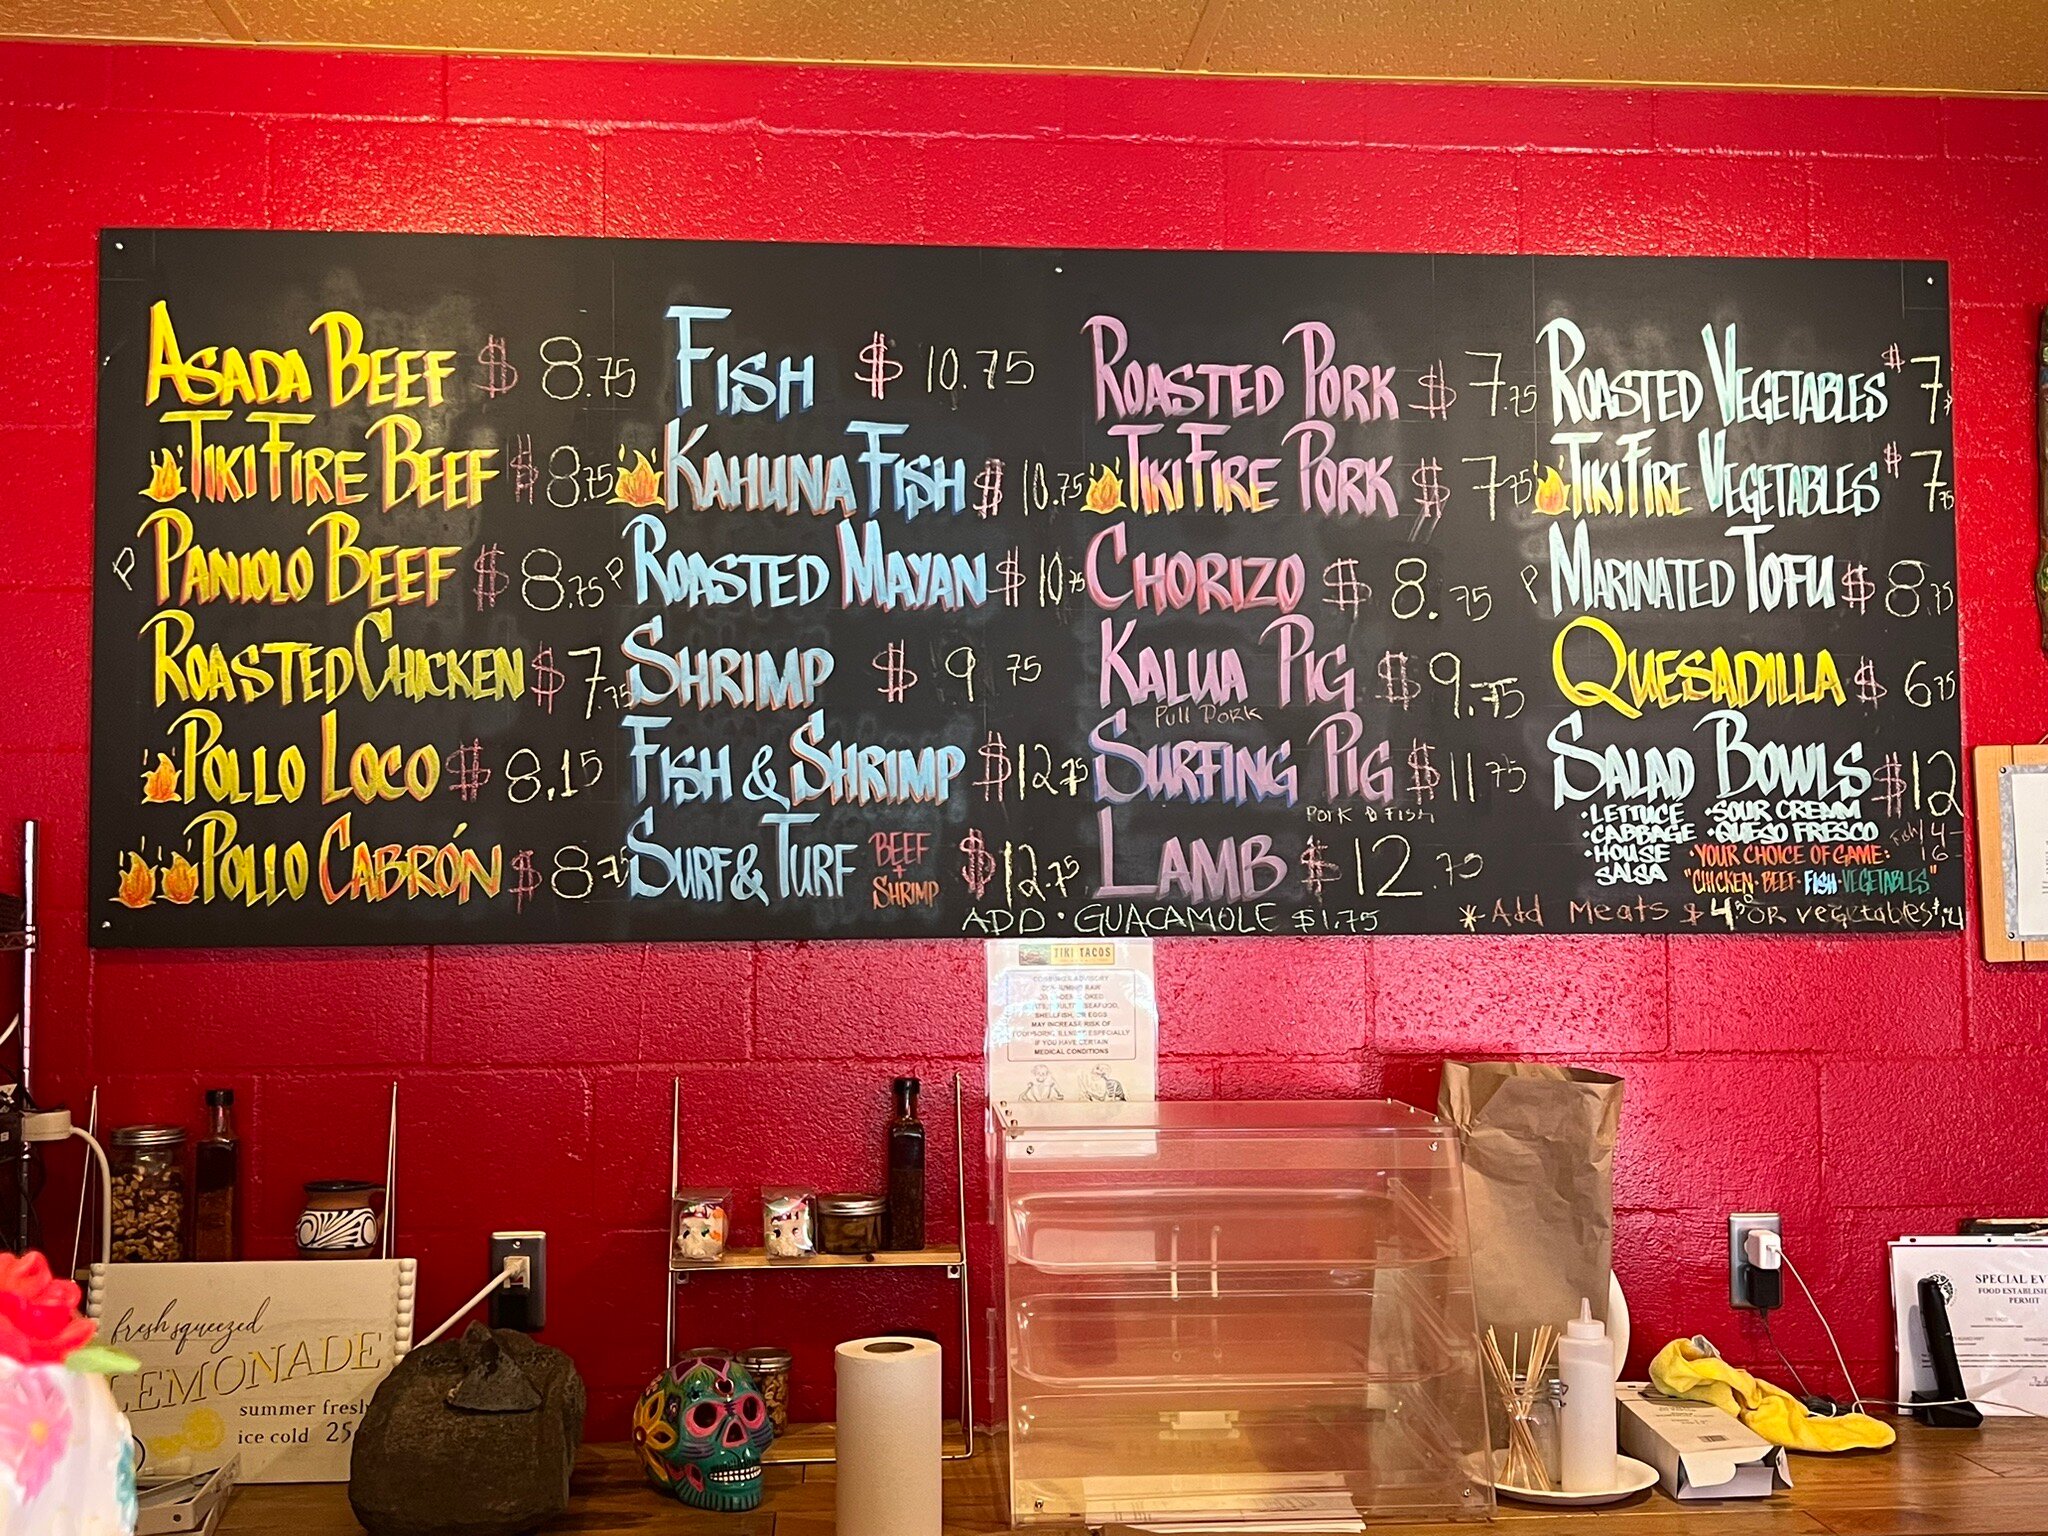 ASADA BEEF $ 8.75
TIKI FIRE BEEF $ 8.75
P PANIOLO BEEF $ 8.75
ROASTED CHICKEN $ 7.75
POLLO LOCO $ 8.15
POLLO CABRÓN $ 8.75
FISH $ 10.75
KAHUNA FISH $ 10.75
P ROASTED MAYAN $ 10.75
SHRIMP $ 9 75
FISH & SHRIMP $12.75
SURF & TURF BEEF + SHRIMP $12.75
ROASTED PORK $ 7.75
TIKI FIRE PORK $ 7.75
CHORIZO $ 8.75
KALUA PIG $9.75
Pull PORK
SURFING PIG $11 75
PORK & FISH
LAMB $ 12.75
ROASTED VEGETABLES $7
TIKI FIRE VEGETABLES $7.75
P MARINATED TOFU $8.75
QUESADILLA $ 6.75
SALAD BOWLS $12
• LETTUCE • SOUR CREAM
• CABBAGE • QUESO FRESCO Fish/14-
• HOUSE SALSA • YOUR CHOICE OF GAME: 16-
"CHICKEN • BEEF • FISH • VEGETABLES"
ADD • GUACAMOLE $1.75
*- Add Meats $4.50 OR vegetables $.4
TIKI TACOS
CONSUMER ADVISORY
CONSUMING RAW
SHELLFISH, OR EGGS
MAY INCREASE RISK OF
FOODBORNE ILLNESS ESPECIALLY
IF YOU HAVE CERTAIN
MEDICAL CONDITIONS
fresh squeezed
LEMONADE
summer fresh
ice cold 25
SPECIAL EV
FOOD ESTABLISH
PERMIT